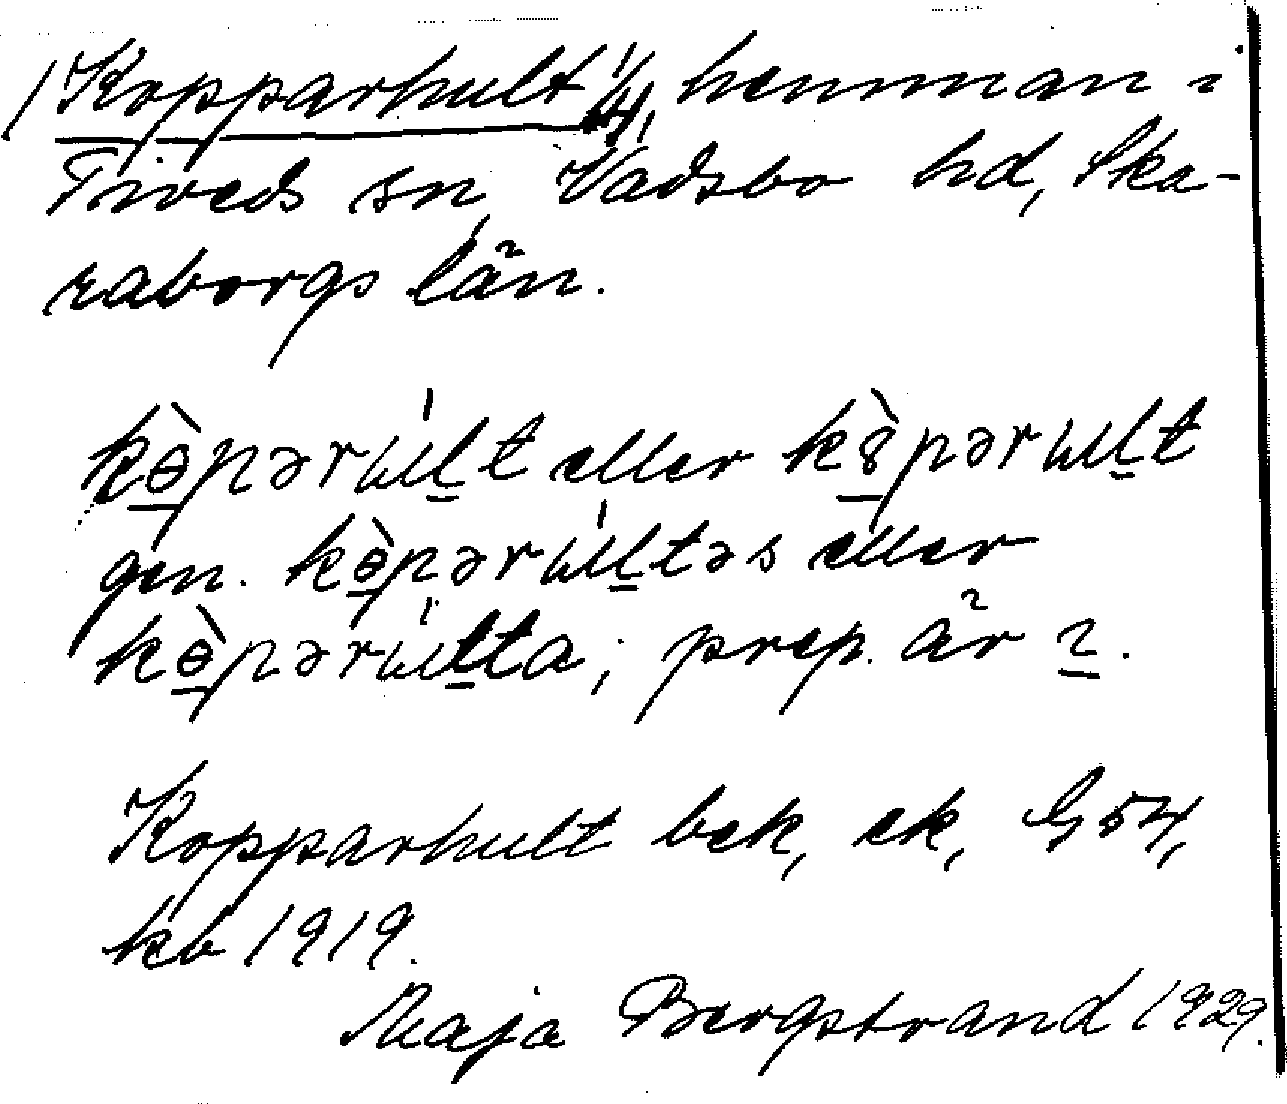 1 Kopparhult 1/4, hemman i
Tiveds sn, Vadsbo hd, Ska-
raborgs län.
kɵ̀pərɯ́lt eller kɞ̀pərɯlt
gen. kɵ̀pərɯ́ltəs eller
kɵ̀pərɯ́lta; prep. är ı.
Kopparhult bek, ek, G 54,
kb 1919.
Maja Bergstrand 1929.